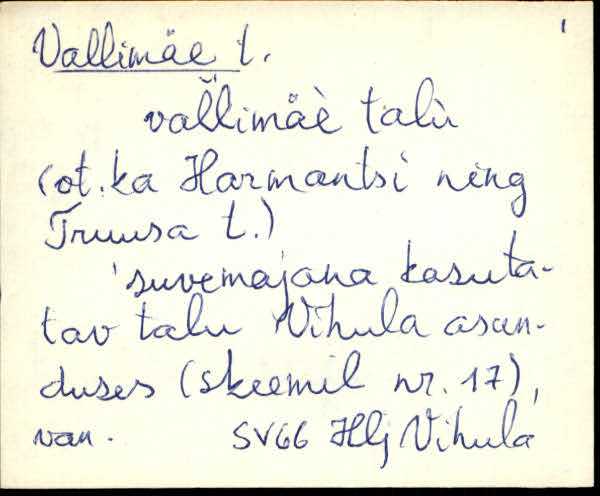 Vallimäe t.
val̆limäè talù
(ot. ka Harmantsi ning
Truusa t.)
'suvemajana kasuta-
tav talu Vihula asun-
duses (skeemil nr. 17),
van. SV66 Hlj Vihula